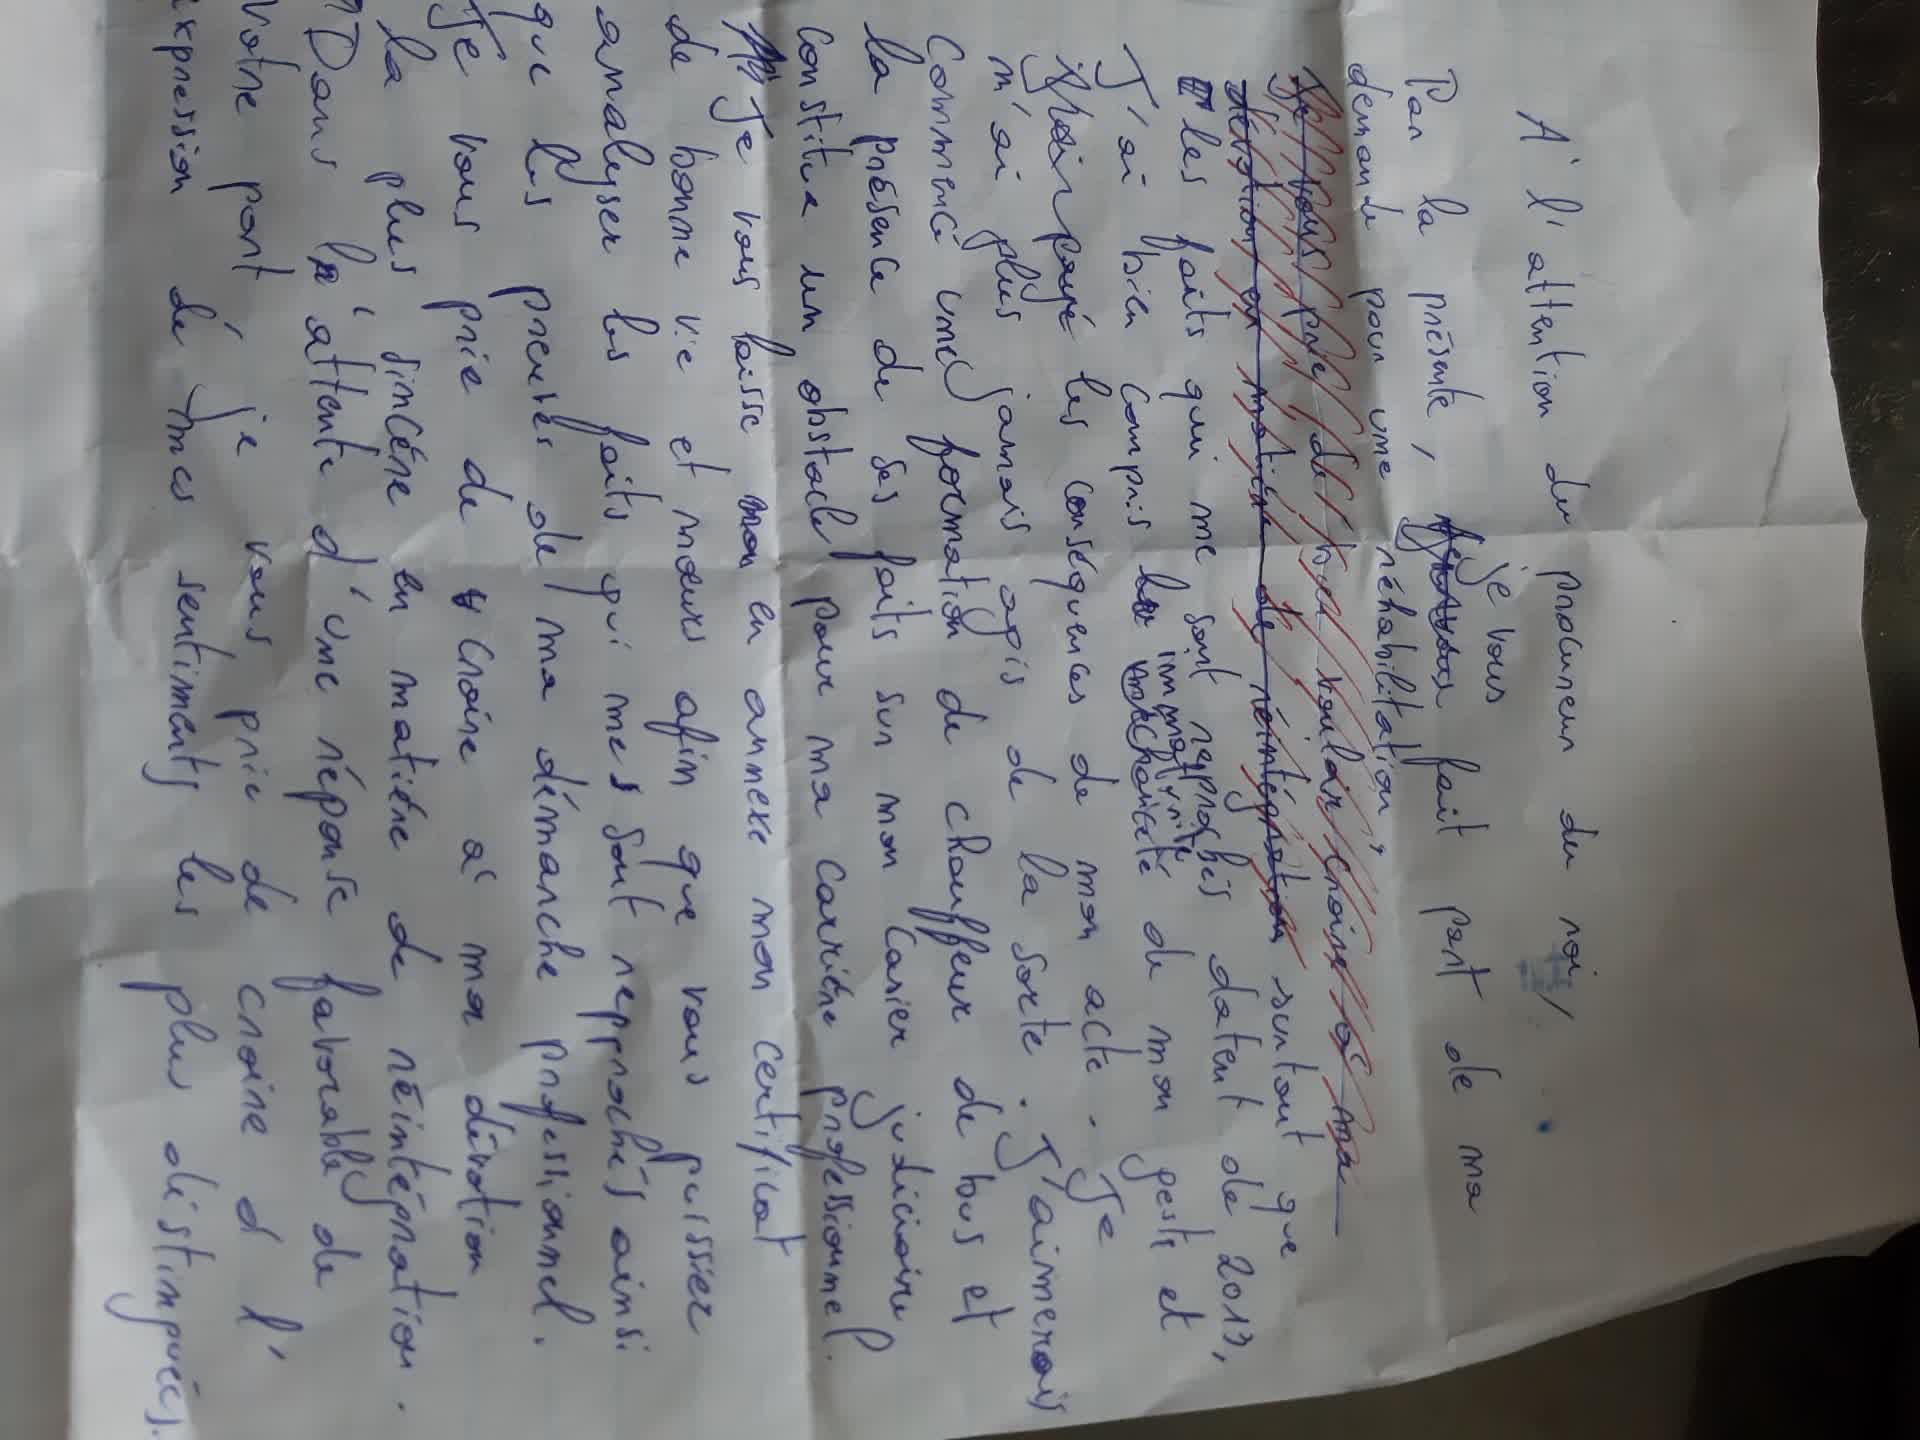 A' l'attention du procureur du roi,
Par la présente, je vous fait part de ma
demande pour une réhabilitation,
Je vous prie de bien vouloir croire à ma
dévotion en matière de réintégration surtout que
les faits qui me sont reprochés datent de 2013,
J'ai bien compris immaturité de mon geste et
payé les conséquences de mon acte. Je
m'ai plus jamais agis de la sorte. J'aimerais
Commencé une formation de chauffeur de bus et
la présence de ses faits sur mon casier judiciaire
constitue un obstacle pour ma carrière professionnel.
Je vous laisse mon en annexe mon certificat
de bonne vie et mœurs afin que vous puissiez
analyser les faits qui mes sont reprochés ainsi
que les preuves de ma démarche professionnel.
Je vous prie de croire à ma dévotion
la plus sincère en matière de réintégration.
Dans l'attente d'une réponse favorable de
votre part, je vous prie de croire d l'
expression de mes sentiments les plus distingués.